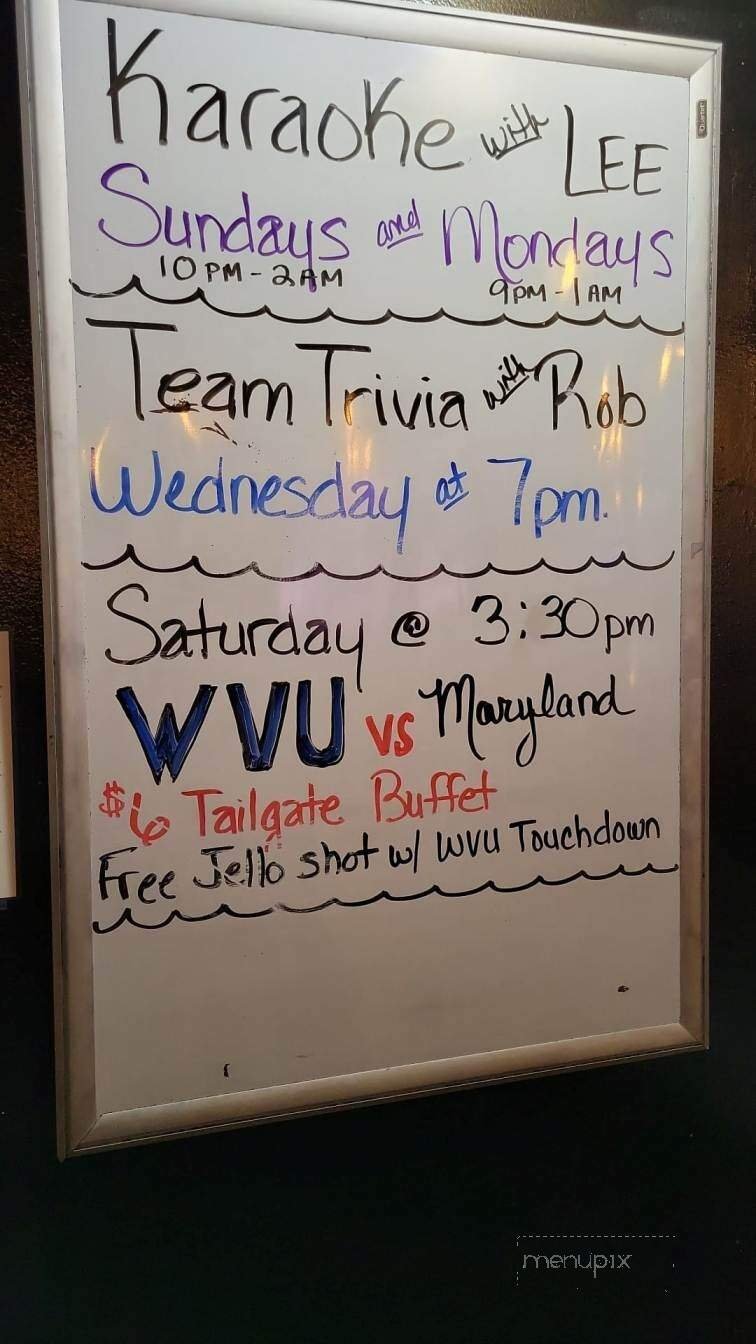 Karaoke with LEE
Sundays and Mondays
10 PM - 2 AM 9PM - 1 AM
Team Trivia with Rob
Wednesday at 7pm.
Saturday @ 3:30pm
WVU vs Maryland
$6 Tailgate Buffet
Free Jello shot w/ WVU Touchdown
menupix